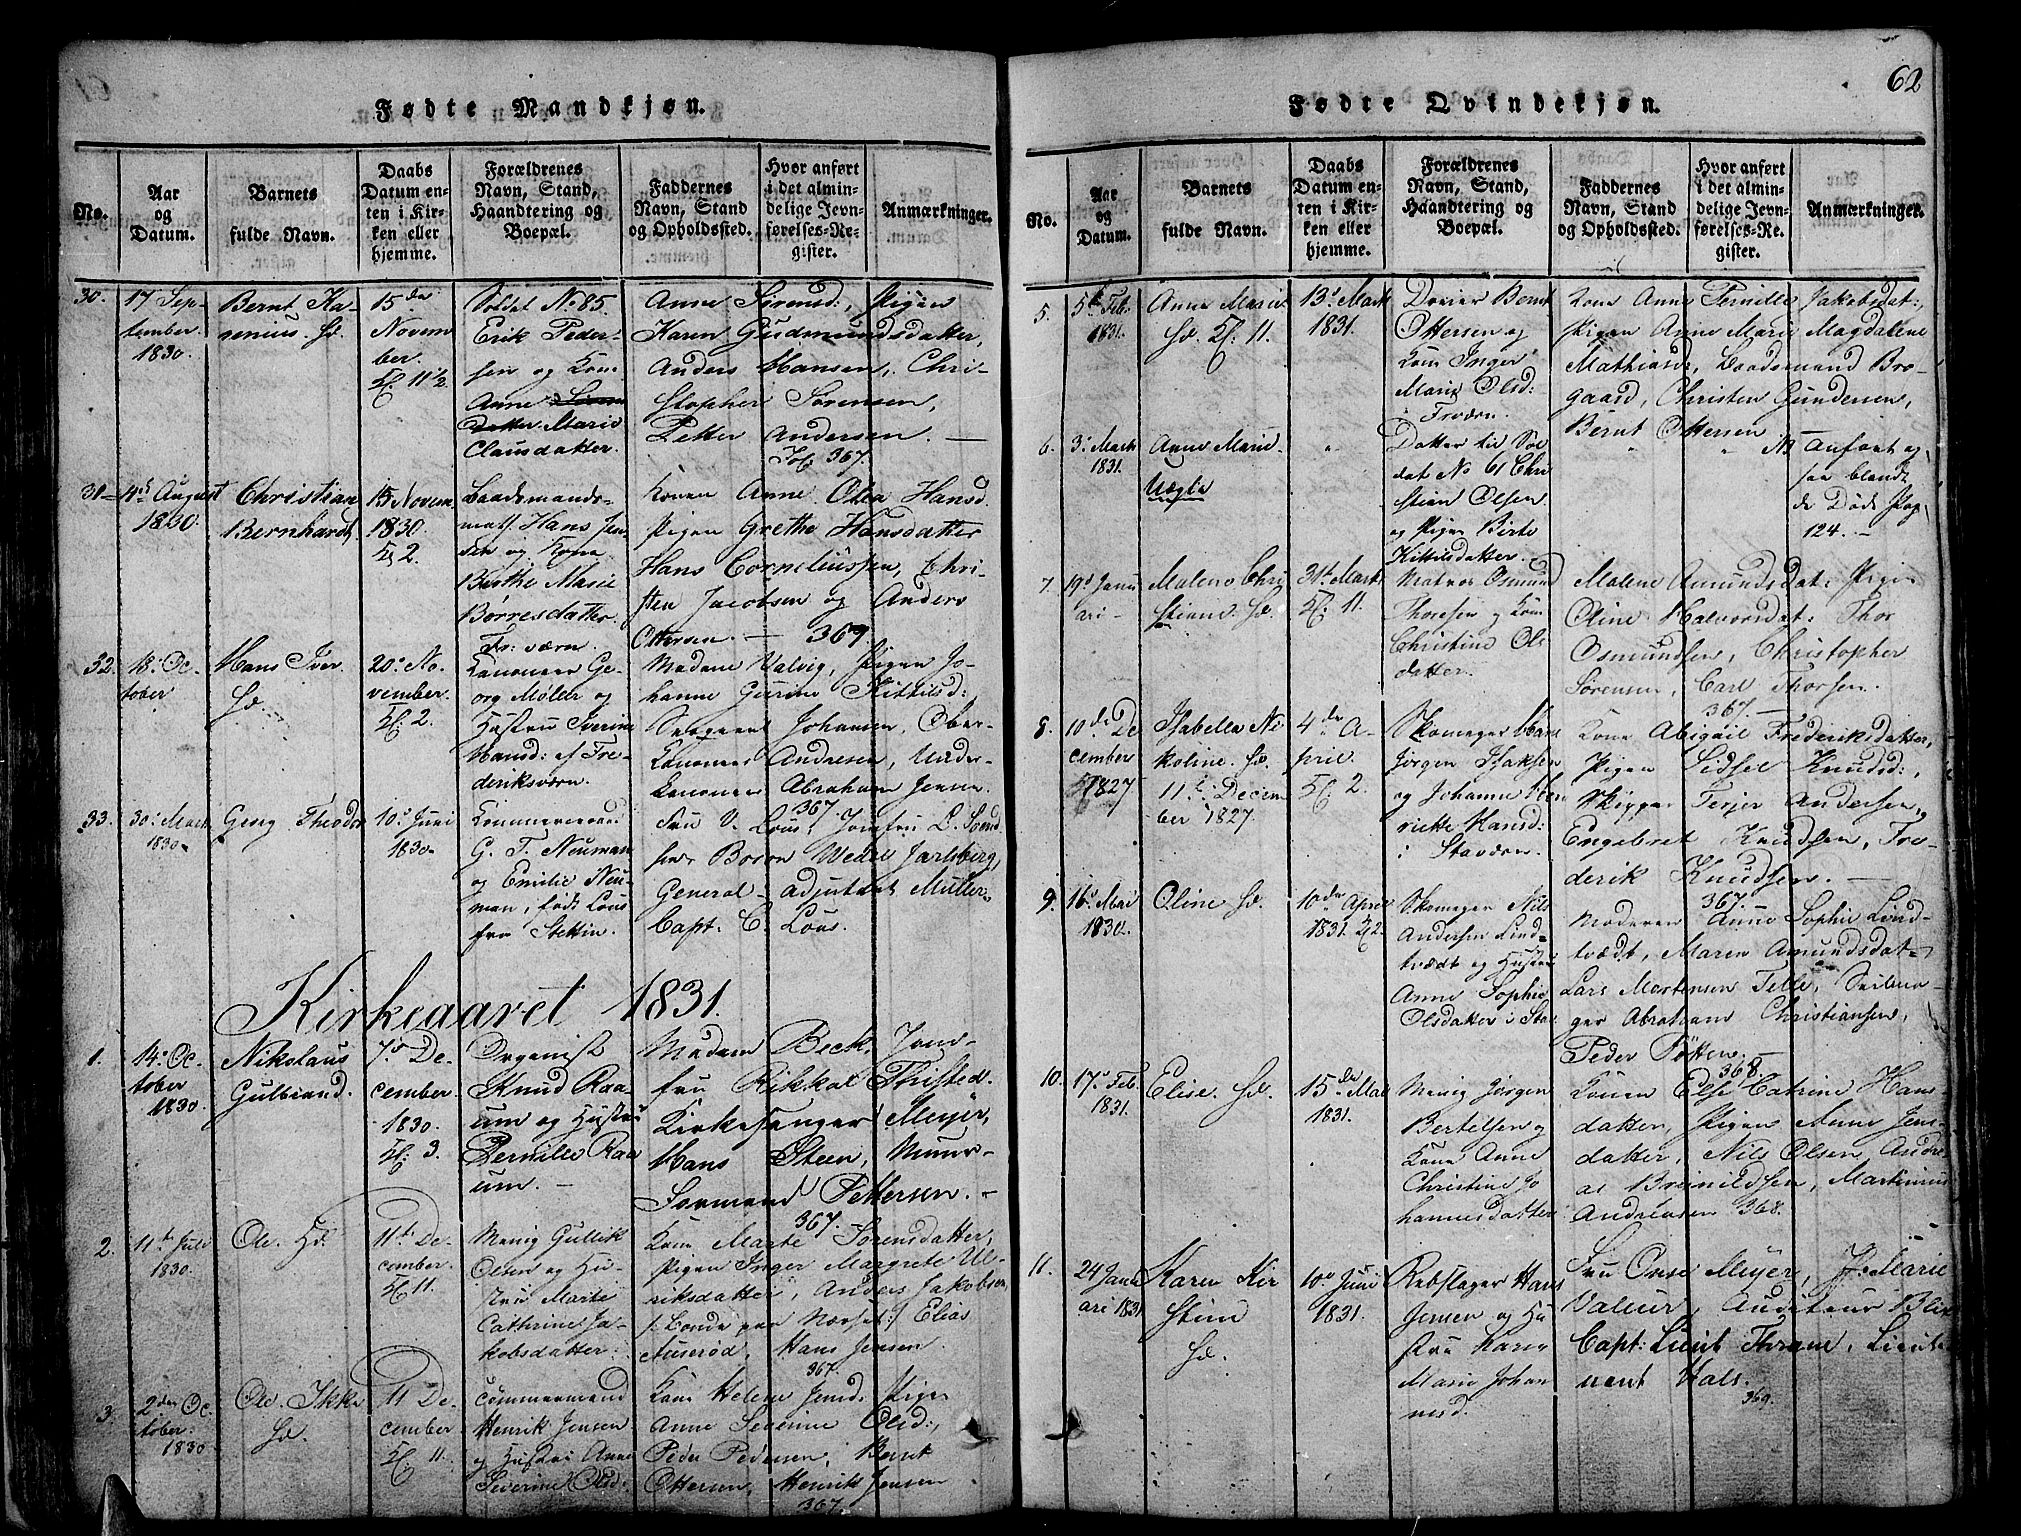 Fødte Mandkjøn.
No.
Aar
og
Datum.
Barnets
fulde Navn.
Daabs
Datum en-
ten i Kir-
ken eller
hjemme.
Forældrenes
Navn, Stand,
Haandtering og
Boepæl.
Faddernes
Navn, Stand
og Opholdssted.
Hvor anført
i det almin-
delige Jevn-
førelses-Re-
gister.
Anmærkninger.
30.
17 Sep-
tember
1830.
Bernt Ka-
15 de
Novem
ber.
Kl. 11 1/2
Soldat No 85.
Erik Peder-
sen og Kone
Anne
datter Marie
Clausdatter.
Anne Sørensd:, Pigen
Karen Gudmundsdatter,
Anders Hansen, Chri-
stopher Sørensen,
Petter Andersen. —
Fol 367.
31
4de August
1830.
Christian
Bernhardt
15 Novem
1830
Kl 2.
Baadsmands-
mat Hans Jen
sen og Kone
Birthe Marie
Børresdatter
Fr: værn.
Konen Anne Olea Hansd.
Pigen Grethe Hansdatter
Hans Corneliussen, Chri-
sten Jacobsen og Anders
Ottersen. — 367
32.
18 Oc
tober
Hans Iver.
20 No
vember.
Kl. 2.
Kanoneer Ge-
org Møller og
Hustru Iverine
af Fre-
deriksværn.
Madame Valvig, Pigen Jo-
hanne Gurine Kittilsd:
Johansen, Ober-
Kanoneer Andresen, Under-
Kanoneer Abraham Jensen.
367
33.
30 Mart
1830
Georg Theodor
10 Juni
1830
Kommerceraad
G. T. Neuman
og Emilie Neu-
man, født Lous
fra Stettin.
Fru V. Lous, Jomfru L.
Baron Wedel Jarlsberg,
General-adjutant Müller,
Capt: C. Lous.
Kirkeaaret 1831.
1.
14 Oc
tober
1830.
Nikolaus
Gulbrand.
7 De-
cember
1830.
Kl. 3.
Organist
Knud Raa
um og Hustru
Pernille Raa
um. —
Madam Beck, Jom-
fru Rikkal Thisted.
Kirkesanger Meyer,
Hans Steen, Muur-
Pettersen. —
367.
2.
11te Juli
1830.
Ole
11te De-
cember.
Kl 11.
Menig Gullik
Olsen og Hu-
stru Marte
Cathrine Ja-
kobsdatter.
Kone Marte Sørensdatter,
Pigen Inger Margrete Ul-
riksdatter, Anders Jakobsen
Elias
Hans Jensen
367.
3.
2den Oc
tober.
1830
11 De
cember
Kl. 11.
Tømmermand
Henrik Jensen
og Hustru Anne
Severine Olsd:
Kone Helene Jensd: Pige
Anne Severine Olsd:,
Peder Pedersen, Bernt
Ottersen, Henrik Jensen
367
62
Fødte Qvindekjøn.
No.
Aar
og
Datum.
Barnets
fulde Navn.
Daabs
Datum en-
ten i Kir-
ken eller
hjemme.
Forældrenes
Navn, Stand,
Haandtering og
Boepæl.
Faddernes
Navn, Stand
og Opholdssted.
Hvor anført
i det almin-
delige Jevn-
førelses-Re-
gister.
Anmærkninger.
5.
5 Feb.
1831.
Anne Marie
Kl. 11.
13 Mart
1831.
Bernt
Ottersen og
Kone Inger
Marie Olsd:
Kone Anne Pernille Jakobsdat:
Pigen Anne Marie Magdalene
Mathiasd:, Baadsmand Bro-
gaard, Christen Gundersen,
Bernt Ottersen
6.
3 Mart
1831.
Anne Marie
Uægte
Datter til Sol
dat No 61 Chri
stian Olsen
og Pigen Birte
Kittilsdatter.
NB Anført og-
saa blandt
de Døde Pag
124. —
7.
19 Janu
ari —
Malene Chri
stine.
31te Mart
Kl. 11.
Matros Osmund
Thorsen og Kone
Christine Ols
datter.
Malene Amundsdat: Pigen
Oline Halvorsdat: Thor
Osmundsen, Christopher
Sørensen, Carl Thorsen.
367.
8.
10de De
cember
1827
Isabella Ni
koline.
11 Decem
ber 1827.
4de A-
pril.
Kl. 2.
Skomager Hans
Jørgen Isaksen
og Johanne Hen
riette Hansd:
i Staværn.
Kone Abigail Frederiksdatter,
Pigen Sidsel Knudsd:,
Skipper Terjer Andersen,
Engebret Knudsen, Fre-
derik Knudsen. —
367.
9.
16 Mai
1830.
Oline
10de April
1831. Kl 2.
Skomager Nils
Andersen Lind-
tvædt og Hustru
Anne Sophie
Olsdatter i Stav
Moderen Anne Sophie Lind-
tvædt, Maren Amundsdat-
Lars Mortensen Telle, Seilma-
ger Abraham Christiansen,
Peder
368.
10.
17 Feb.
1831.
Elise.
15de Mai
1831.
Menig Jørgen
Bertelsen og
Kone Anne
Christine Jo
hannesdatter
Konen Else Catrine Hans
datter, Pigen Anne Jens-
datter, Nils Olsen, Andre-
as Brynildsen, Martinius
Andreasen 368.
11.
24 Janu
ari 1831
Karen Kir
stine
10 Juni
1831.
Rebslager Hans
Jensen og Hu
stru Karen
Marie Johan
nesd.
Fru Meyer, Marie
Valeur, Auditeur Blix
Capt: Lieut Thrane, Lieute
nant Hals.
369.